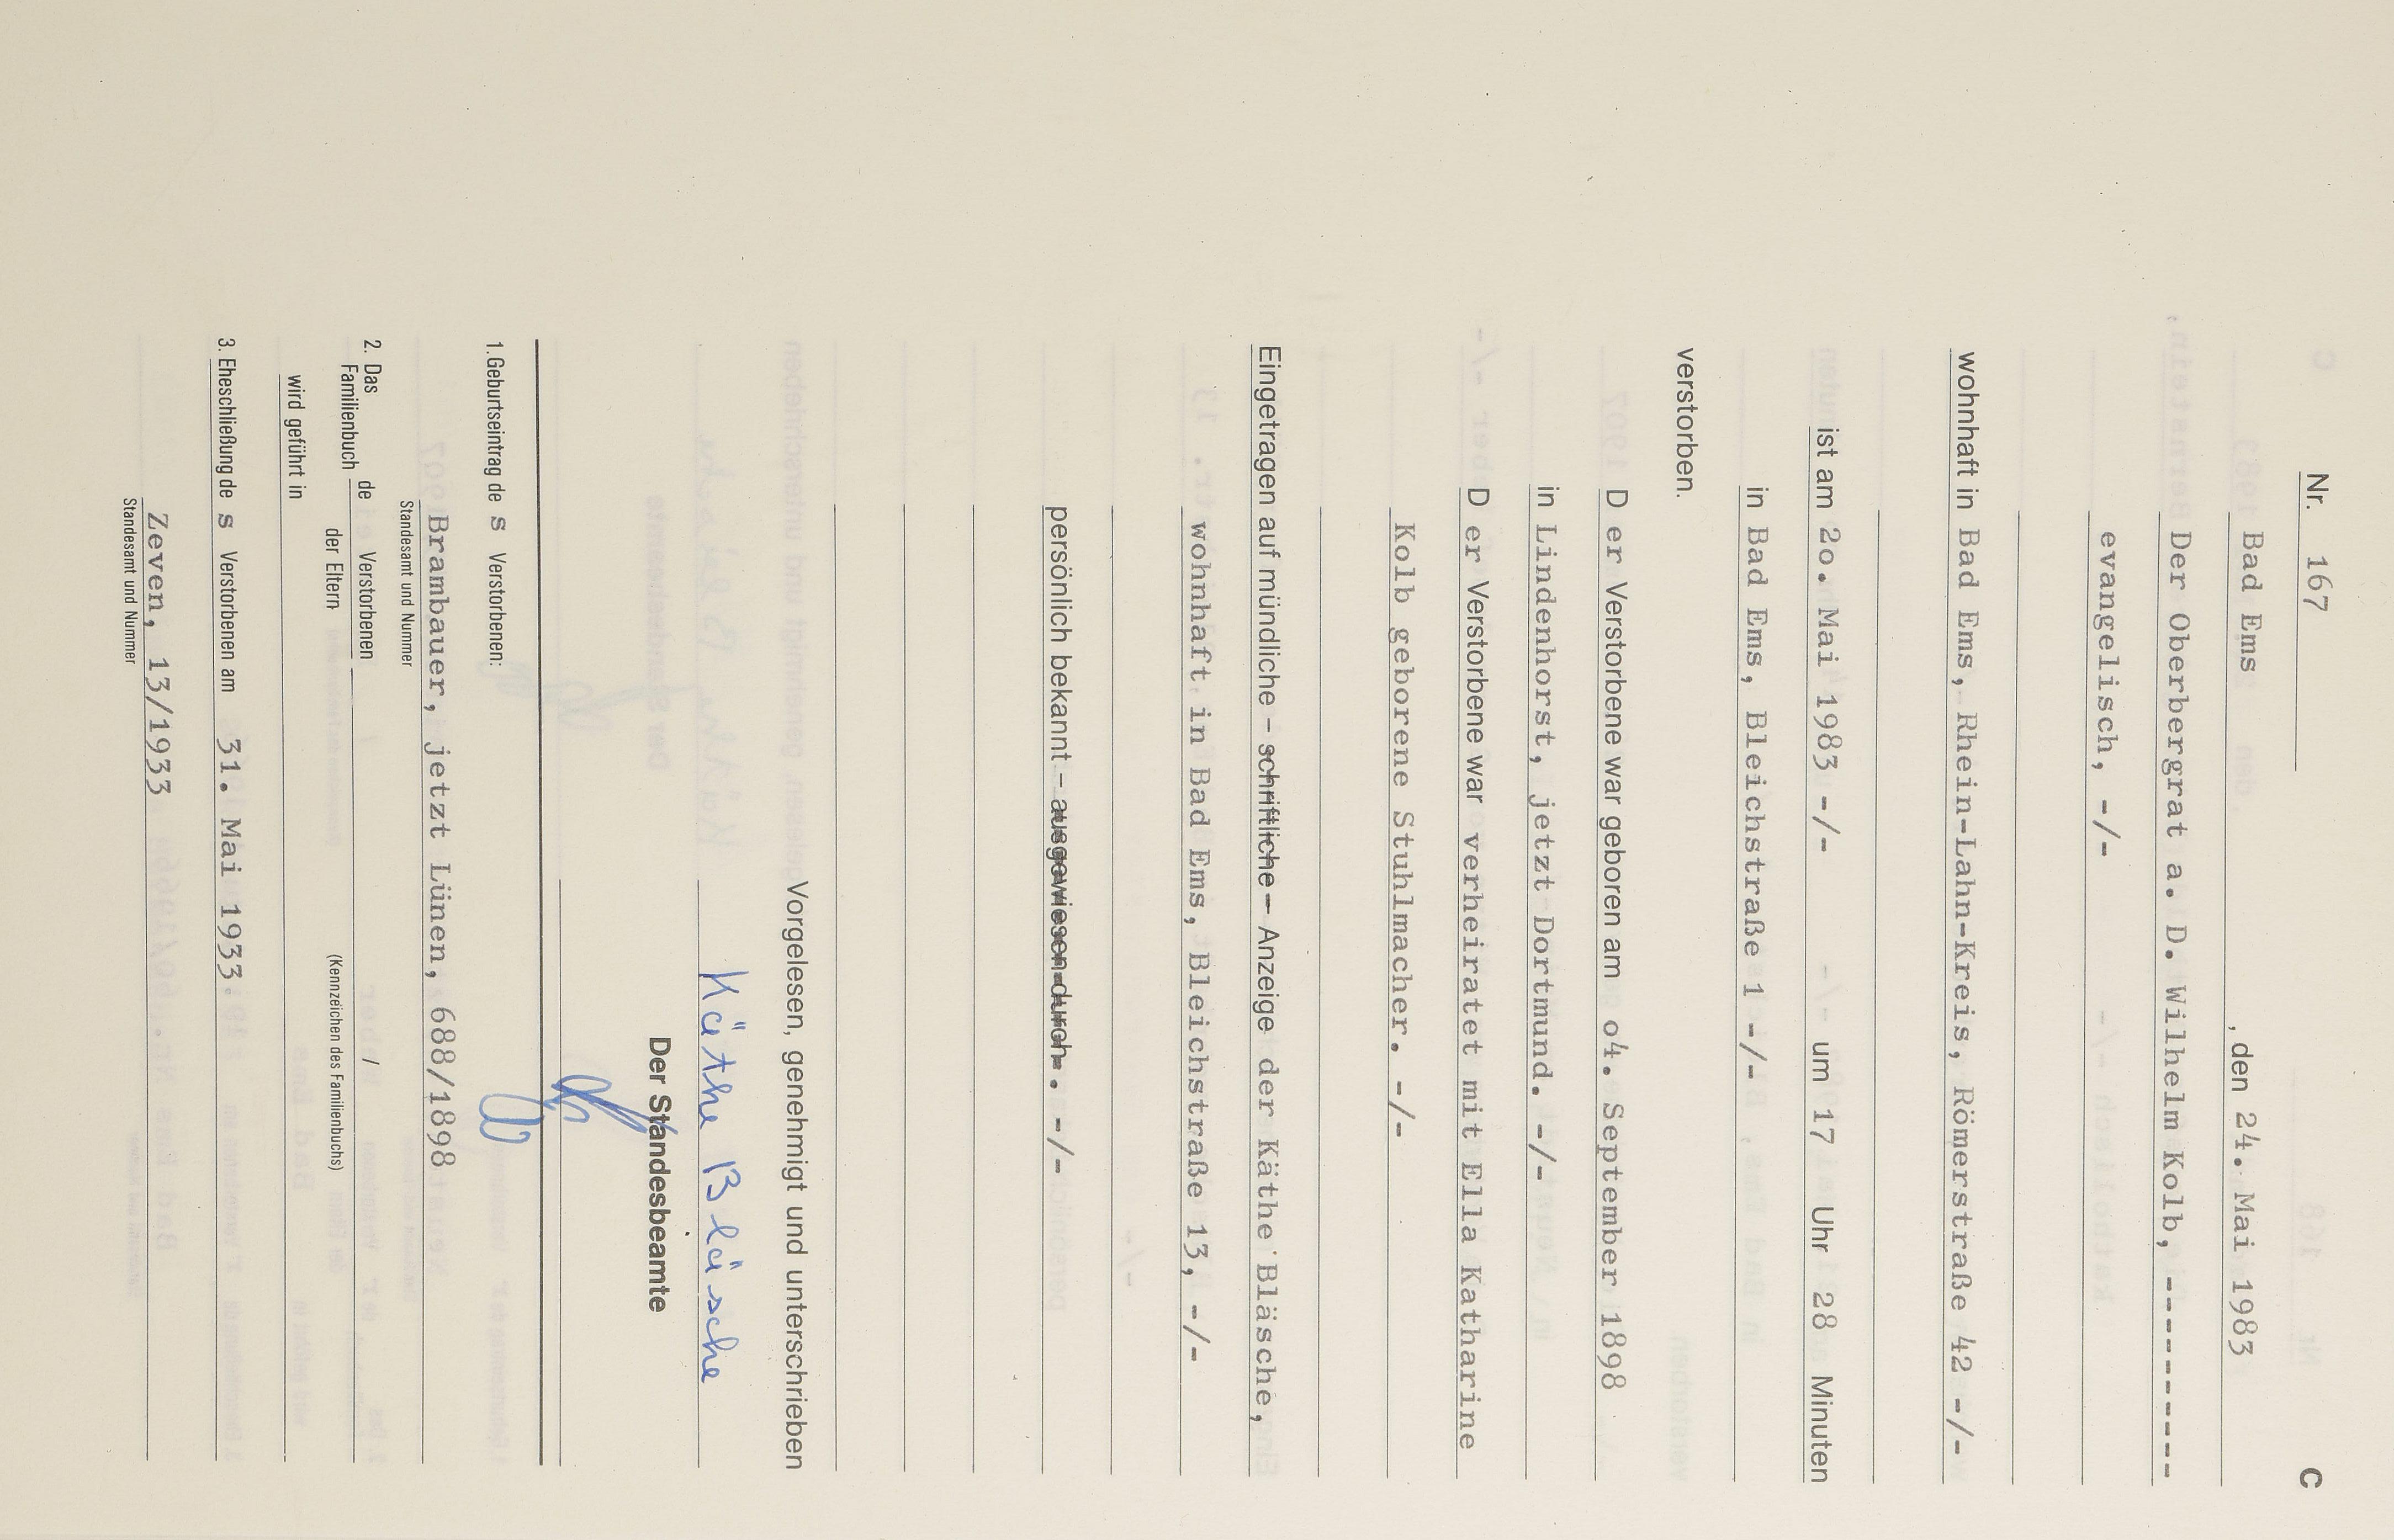 Nr. 167
C
Bad Ems , den 24. Mai 1983
Der Oberbergrat a. D. Wilhelm Kolb, ----------
evangelisch, -/-
wohnhaft in Bad Ems, Rhein-Lahn-Kreis, Römerstraße 42 -/-
ist am 2o. Mai 1983 -/- um 17 Uhr 28 Minuten
in Bad Ems, Bleichstraße 1 -/-
verstorben.
D er Verstorbene war geboren am o4. September 1898
in Lindenhorst, jetzt Dortmund. -/-
D er Verstorbene war verheiratet mit Ella Katharine
Kolb geborene Stuhlmacher. -/-
Eingetragen auf mündliche – schriftliche – Anzeige der Käthe Bläsche,
wohnhaft in Bad Ems, Bleichstraße 13, -/-
persönlich bekannt – ausgewiesen durch. -/-
Vorgelesen, genehmigt und unterschrieben
Käthe Bläsche
Der Standesbeamte
1. Geburtseintrag de s Verstorbenen:
Brambauer, jetzt Lünen, 688/1898
Standesamt und Nummer
2. Das Familienbuch de Verstorbenen /
der Eltern (Kennzeichen des Familienbuchs)
wird geführt in
3. Eheschließung de s Verstorbenen am 31. Mai 1933.
Zeven, 13/1933
Standesamt und Nummer